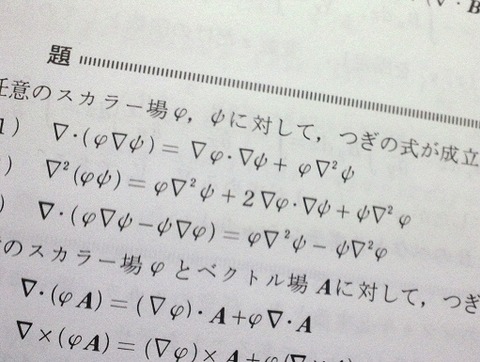 題
任意のスカラー場φ, ψに対して, つぎの式が成立
1) ∇·(φ∇ψ)=∇φ·∇ψ+φ∇²ψ
) ∇²(φψ)=φ∇²ψ+2∇φ·∇ψ+ψ∇²φ
) ∇·(φ∇ψ−ψ∇φ)=φ∇²ψ−ψ∇²φ
のスカラー場φとベクトル場Aに対して, つぎ
∇·(φA)=(∇φ)·A+φ∇·A
∇×(φA)=(∇φ)×A+φ(∇